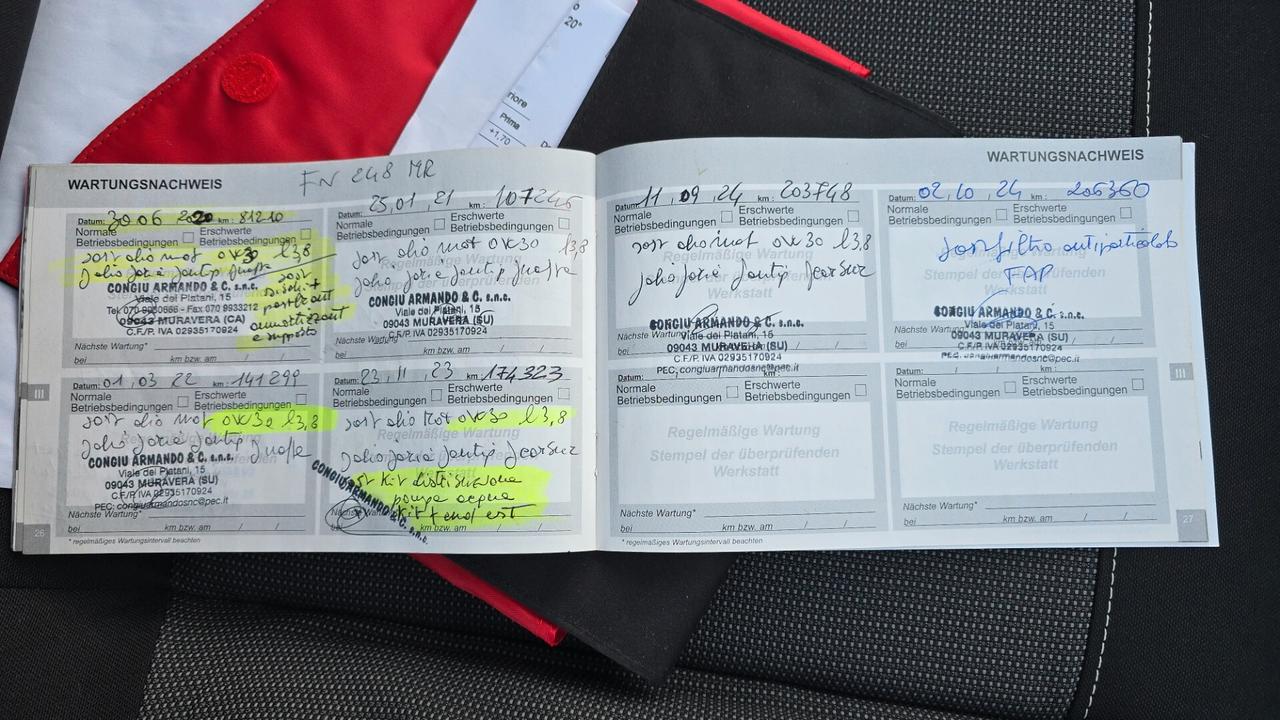 o
20°
riore
Prima
+1,70
WARTUNGSNACHWEIS
FN 248 MR
Datum: 30 06 2020 km: 81210
Normale Betriebsbedingungen
Erschwerte Betriebsbedingungen
sost olio mot 0w30 l3,8
CONGIU ARMANDO & C. s.n.c.
Viale dei Platani, 15
09043 MURAVERA (CA)
C.F./P. IVA 02935170924
sost
dischi +
ammortizzat
e supporto
Nächste Wartung*
bei km bzw. am / /
Datum: 25,01,21 km: 107245
Normale Betriebsbedingungen
Erschwerte Betriebsbedingungen
sost olio mot 0w30 l3,8
CONGIU ARMANDO & C. s.n.c.
Viale dei Platani, 15
09043 MURAVERA (SU)
C.F./P. IVA 02935170924
Nächste Wartung*
bei km bzw. am / /
III
Datum: 01,03 22 km: 141299
Normale Betriebsbedingungen
Erschwerte Betriebsbedingungen
sost olio mot 0w30 l3,8
CONGIU ARMANDO & C. s.n.c.
Viale dei Platani, 15
09043 MURAVERA (SU)
C.F./P. IVA 02935170924
PEC: congiuarmandosnc@pec.it
Nächste Wartung*
bei km bzw. am / /
Datum: 23,11,23 km: 174323
Normale Betriebsbedingungen
Erschwerte Betriebsbedingungen
sost olio mot 0w30 l3,8
Regelmäßige Wartung
sost Kit distribuzione
pompa acqua
Kit tend est
CONGIU ARMANDO & C. s.n.c.
Nächste Wartung*
bei km bzw. am / /
26
* regelmäßiges Wartungsintervall beachten
WARTUNGSNACHWEIS
Datum: 11,09,24 km: 203748
Normale Betriebsbedingungen
Erschwerte Betriebsbedingungen
sost olio mot 0w30 l3,8
CONGIU ARMANDO & C. s.n.c.
Viale dei Platani, 15
09043 MURAVERA (SU)
C.F./P. IVA 02935170924
PEC: congiuarmandosnc@pec.it
Nächste Wartung*
Datum: 02,10,24 km: 206360
Normale Betriebsbedingungen
Erschwerte Betriebsbedingungen
sost filtro antiparticolato
FAP
CONGIU ARMANDO & C. s.n.c.
Viale dei Platani, 15
09043 MURAVERA (SU)
C.F./P. IVA 02935170924
PEC: congiuarmandosnc@pec.it
Nächste Wartung*
bei
Datum: / / km:
Normale Betriebsbedingungen
Erschwerte Betriebsbedingungen
Regelmäßige Wartung
Stempel der überprüfenden
Werkstatt
Nächste Wartung*
bei km bzw. am / /
Datum: / / km:
Normale Betriebsbedingungen
Erschwerte Betriebsbedingungen
Regelmäßige Wartung
Stempel der überprüfenden
Werkstatt
Nächste Wartung*
bei km bzw. am / /
III
* regelmäßiges Wartungsintervall beachten
27